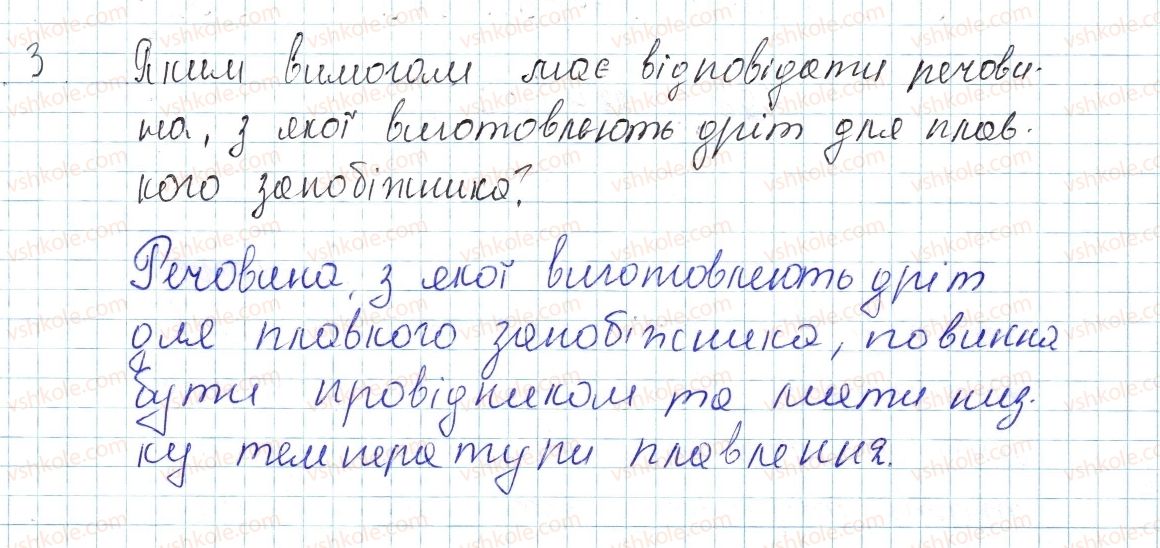 3 Яким вимогам має відповідати речови-
на, з якої виготовляють дріт для плав-
кого запобіжника?
Речовина, з якої виготовляють дріт
для плавкого запобіжника, повинна
бути провідником та мати низ-
ку температури плавлення.